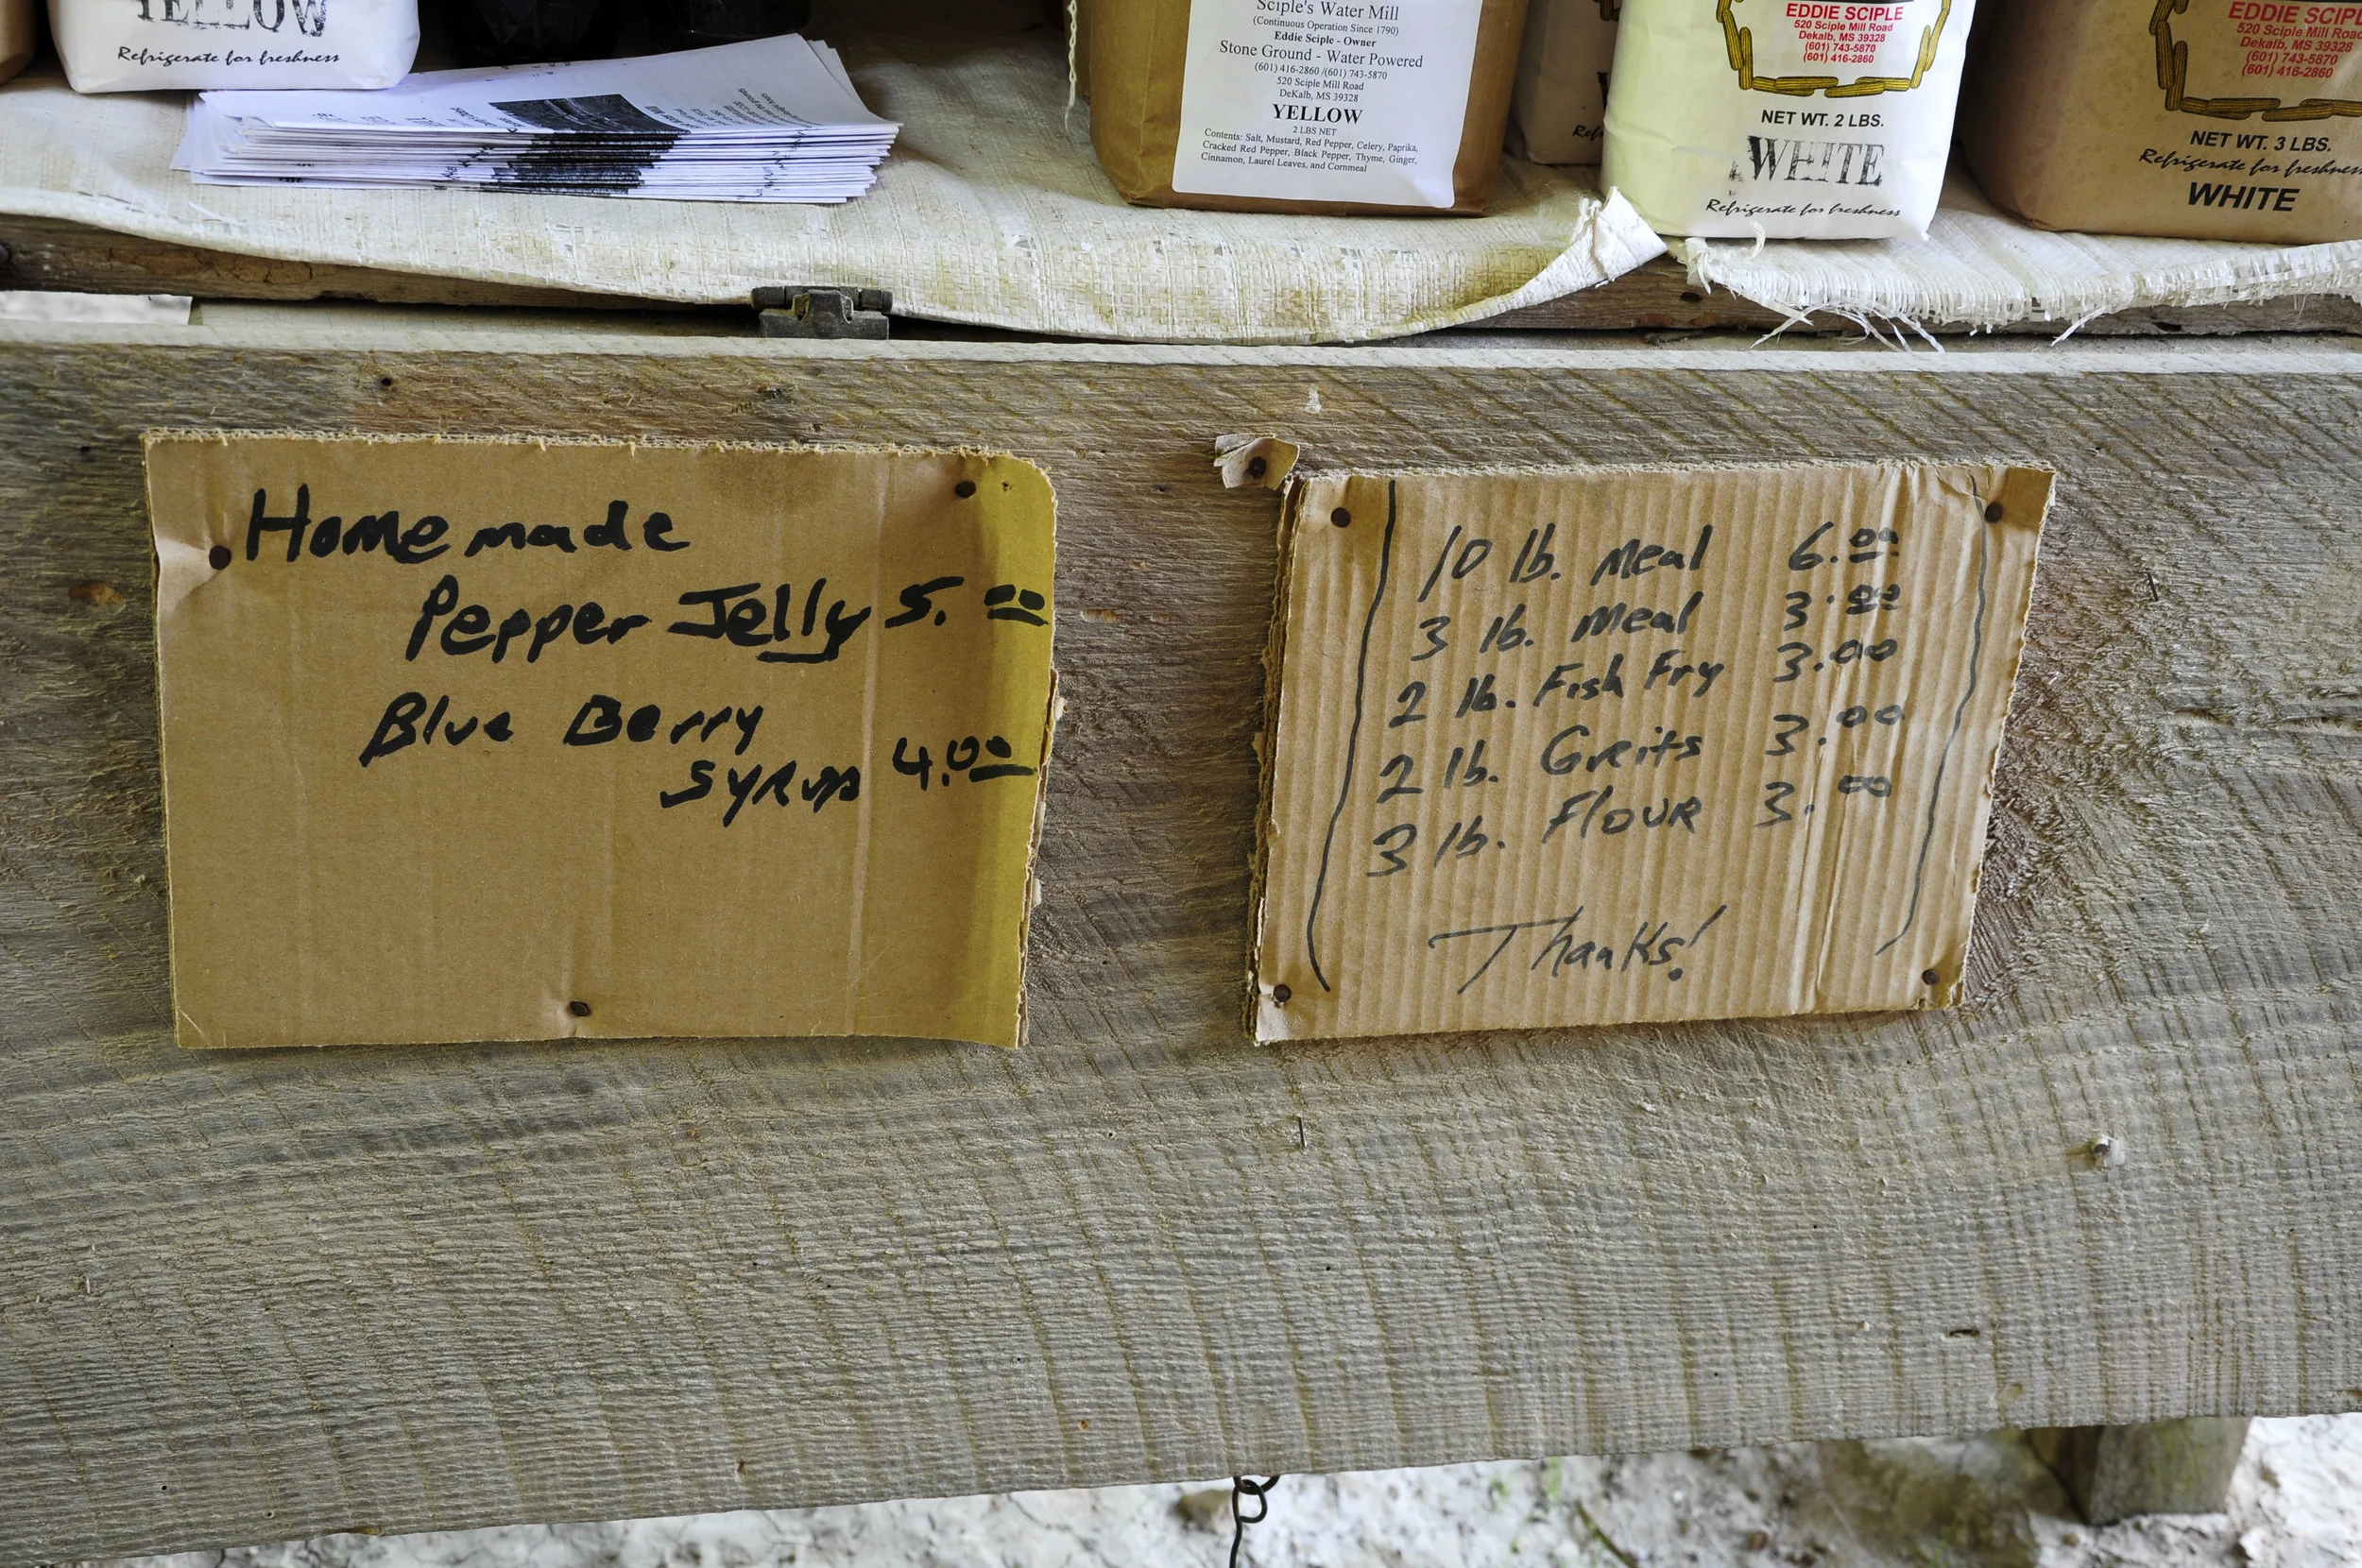 YELLOW
Refrigerate for freshness
Sciple's Water Mill
(Continuous Operation Since 1790)
Eddie Sciple - Owner
Stone Ground - Water Powered
(601) 416-2860 /(601) 743-5870
520 Sciple Mill Road
DeKalb, MS 39328
YELLOW
2 LBS NET
Contents: Salt, Mustard, Red Pepper, Celery, Paprika,
Cracked Red Pepper, Black Pepper, Thyme, Ginger,
Cinnamon, Laurel Leaves, and Cornmeal
EDDIE SCIPLE
520 Sciple Mill Road
Dekalb, MS 39328
(601) 743-5870
(601) 416-2860
NET WT. 2 LBS.
WHITE
Refrigerate for freshness
EDDIE SCIPL
520 Sciple Mill Road
Dekalb, MS 39328
(601) 743-5870
(601) 416-2860
NET WT. 3 LBS.
Refrigerate for freshness
WHITE
Homemade
Pepper Jelly 5.00
Blue Berry
Syrup 4.00
10 lb. Meal 6.00
3 lb. Meal 3.00
2 lb. Fish Fry 3.00
2 lb. Greits 3.00
3 lb. Flour 3.00
Thanks!